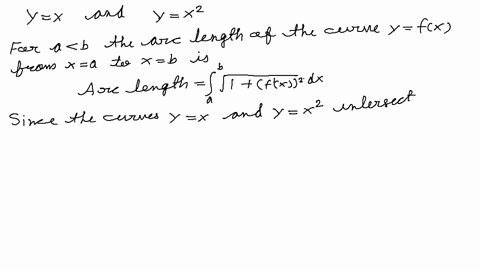 y=x and y=x²
For a<b the arc length of the curve y=f(x)
from x=a to x=b is
Arc length = ∫ₐᵇ √(1+(f'(x))²) dx
Since the curves y=x and y=x² intersect